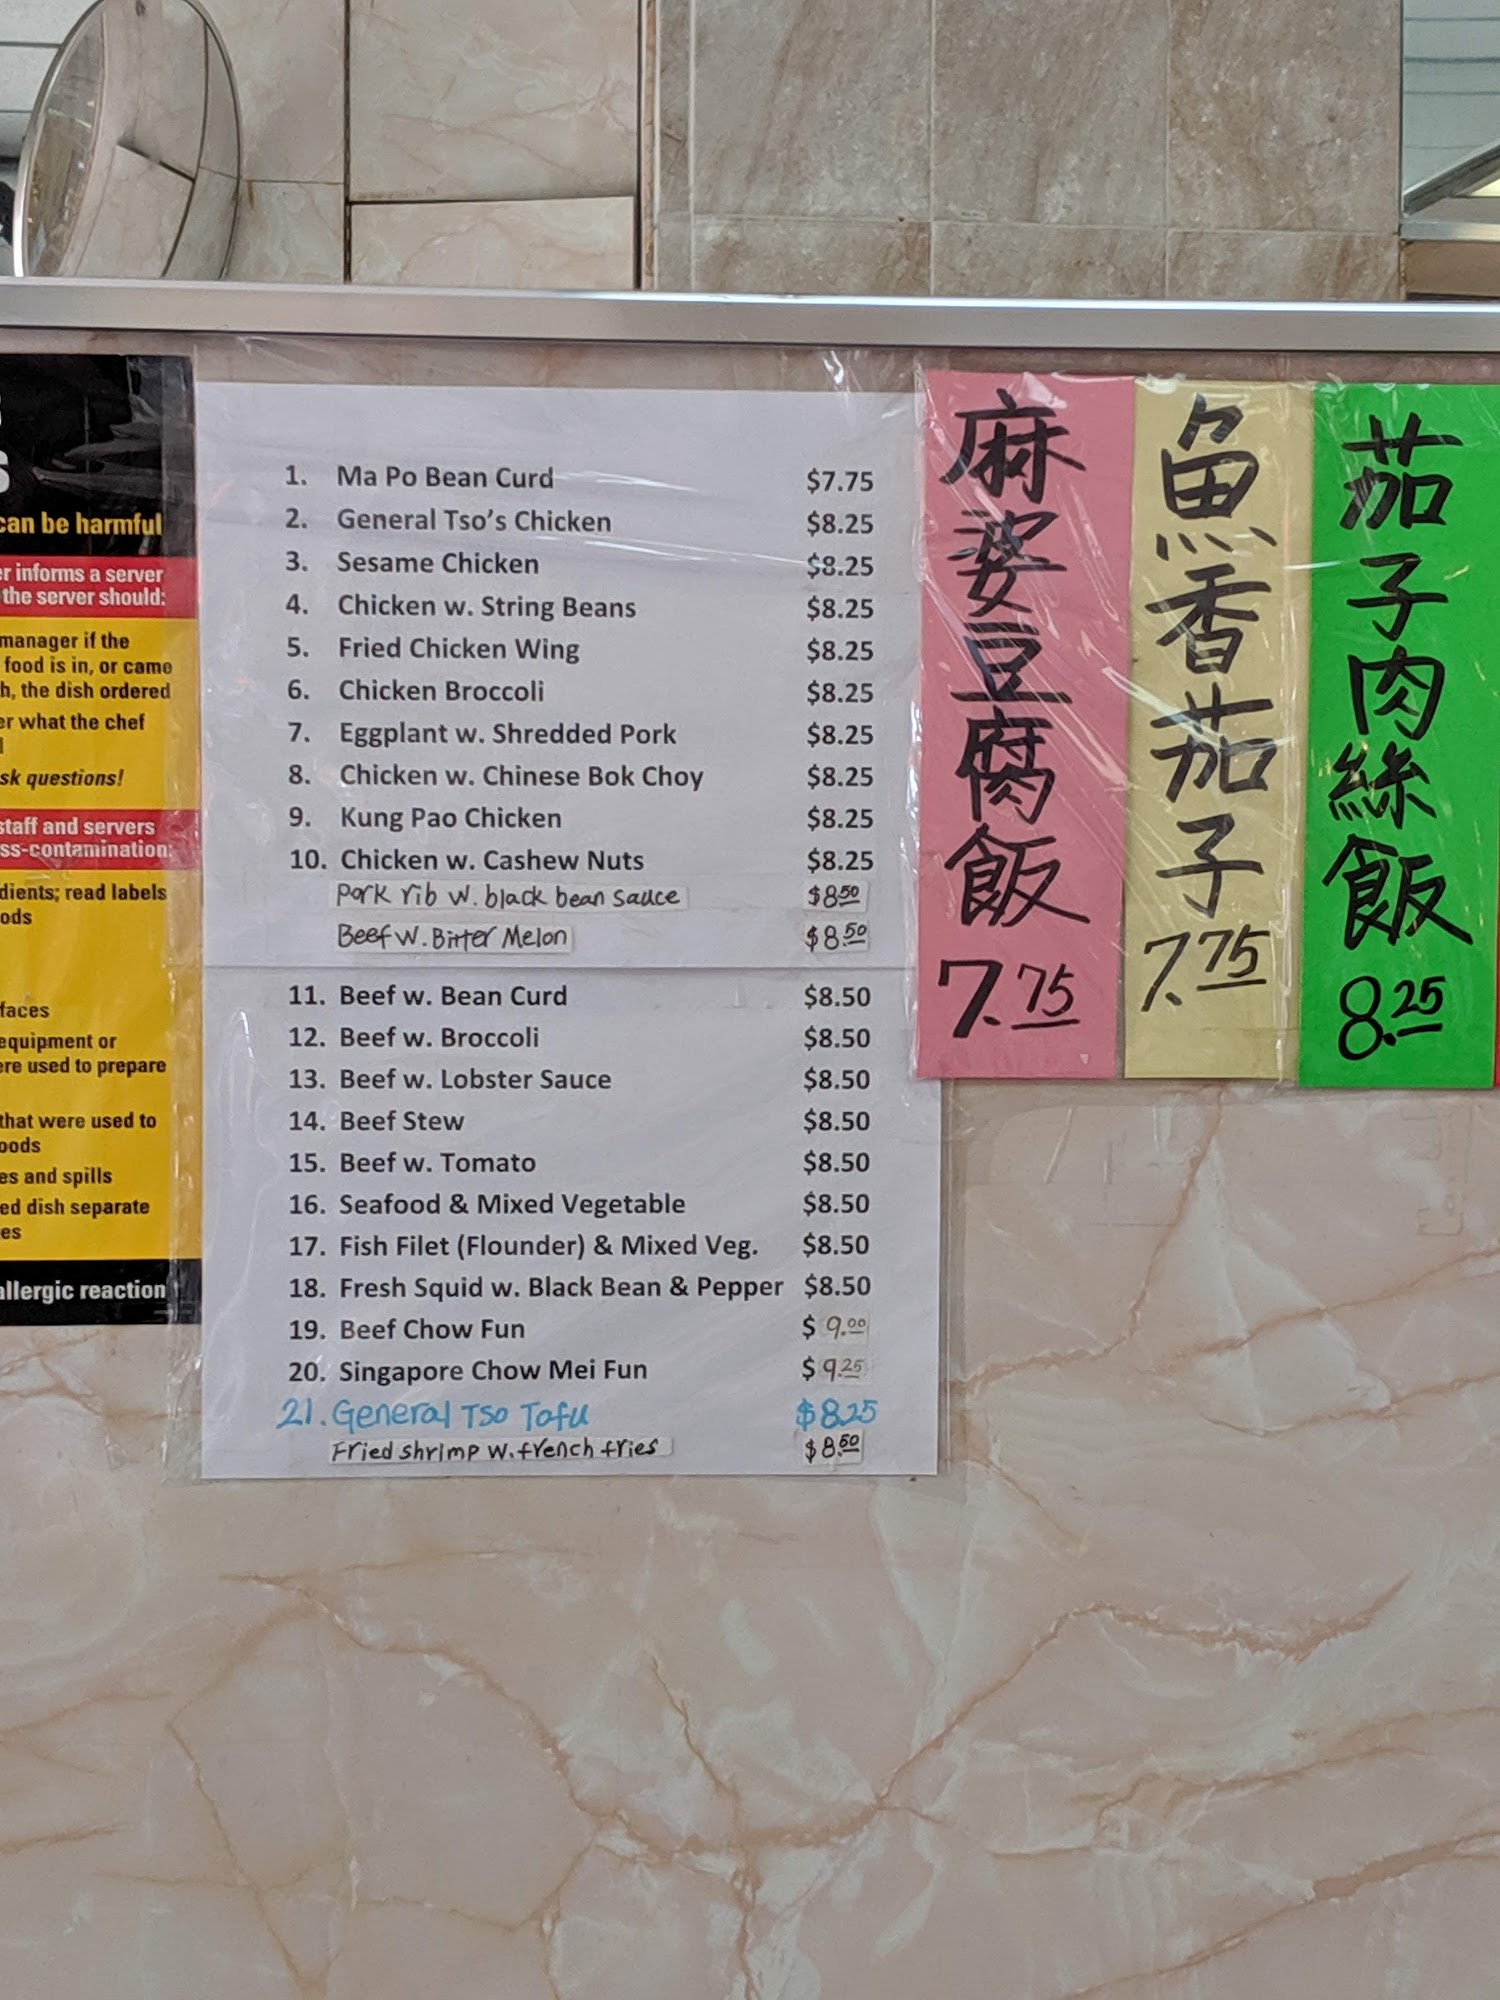 can be harmful
er informs a server
the server should:
manager if the
food is in, or came
h, the dish ordered
er what the chef
sk questions!
staff and servers
ss-contamination:
dients; read labels
ods
faces
equipment or
ere used to prepare
that were used to
oods
es and spills
ed dish separate
es
allergic reaction
1. Ma Po Bean Curd $7.75
2. General Tso's Chicken $8.25
3. Sesame Chicken $8.25
4. Chicken w. String Beans $8.25
5. Fried Chicken Wing $8.25
6. Chicken Broccoli $8.25
7. Eggplant w. Shredded Pork $8.25
8. Chicken w. Chinese Bok Choy $8.25
9. Kung Pao Chicken $8.25
10. Chicken w. Cashew Nuts $8.25
Pork rib w. black bean sauce $8.50
Beef w. Bitter Melon $8.50
11. Beef w. Bean Curd $8.50
12. Beef w. Broccoli $8.50
13. Beef w. Lobster Sauce $8.50
14. Beef Stew $8.50
15. Beef w. Tomato $8.50
16. Seafood & Mixed Vegetable $8.50
17. Fish Filet (Flounder) & Mixed Veg. $8.50
18. Fresh Squid w. Black Bean & Pepper $8.50
19. Beef Chow Fun $9.00
20. Singapore Chow Mei Fun $9.25
21. General Tso Tofu $8.25
Fried shrimp w. french fries $8.50
麻婆豆腐飯 7.75
魚香茄子 7.75
茄子肉絲飯 8.25